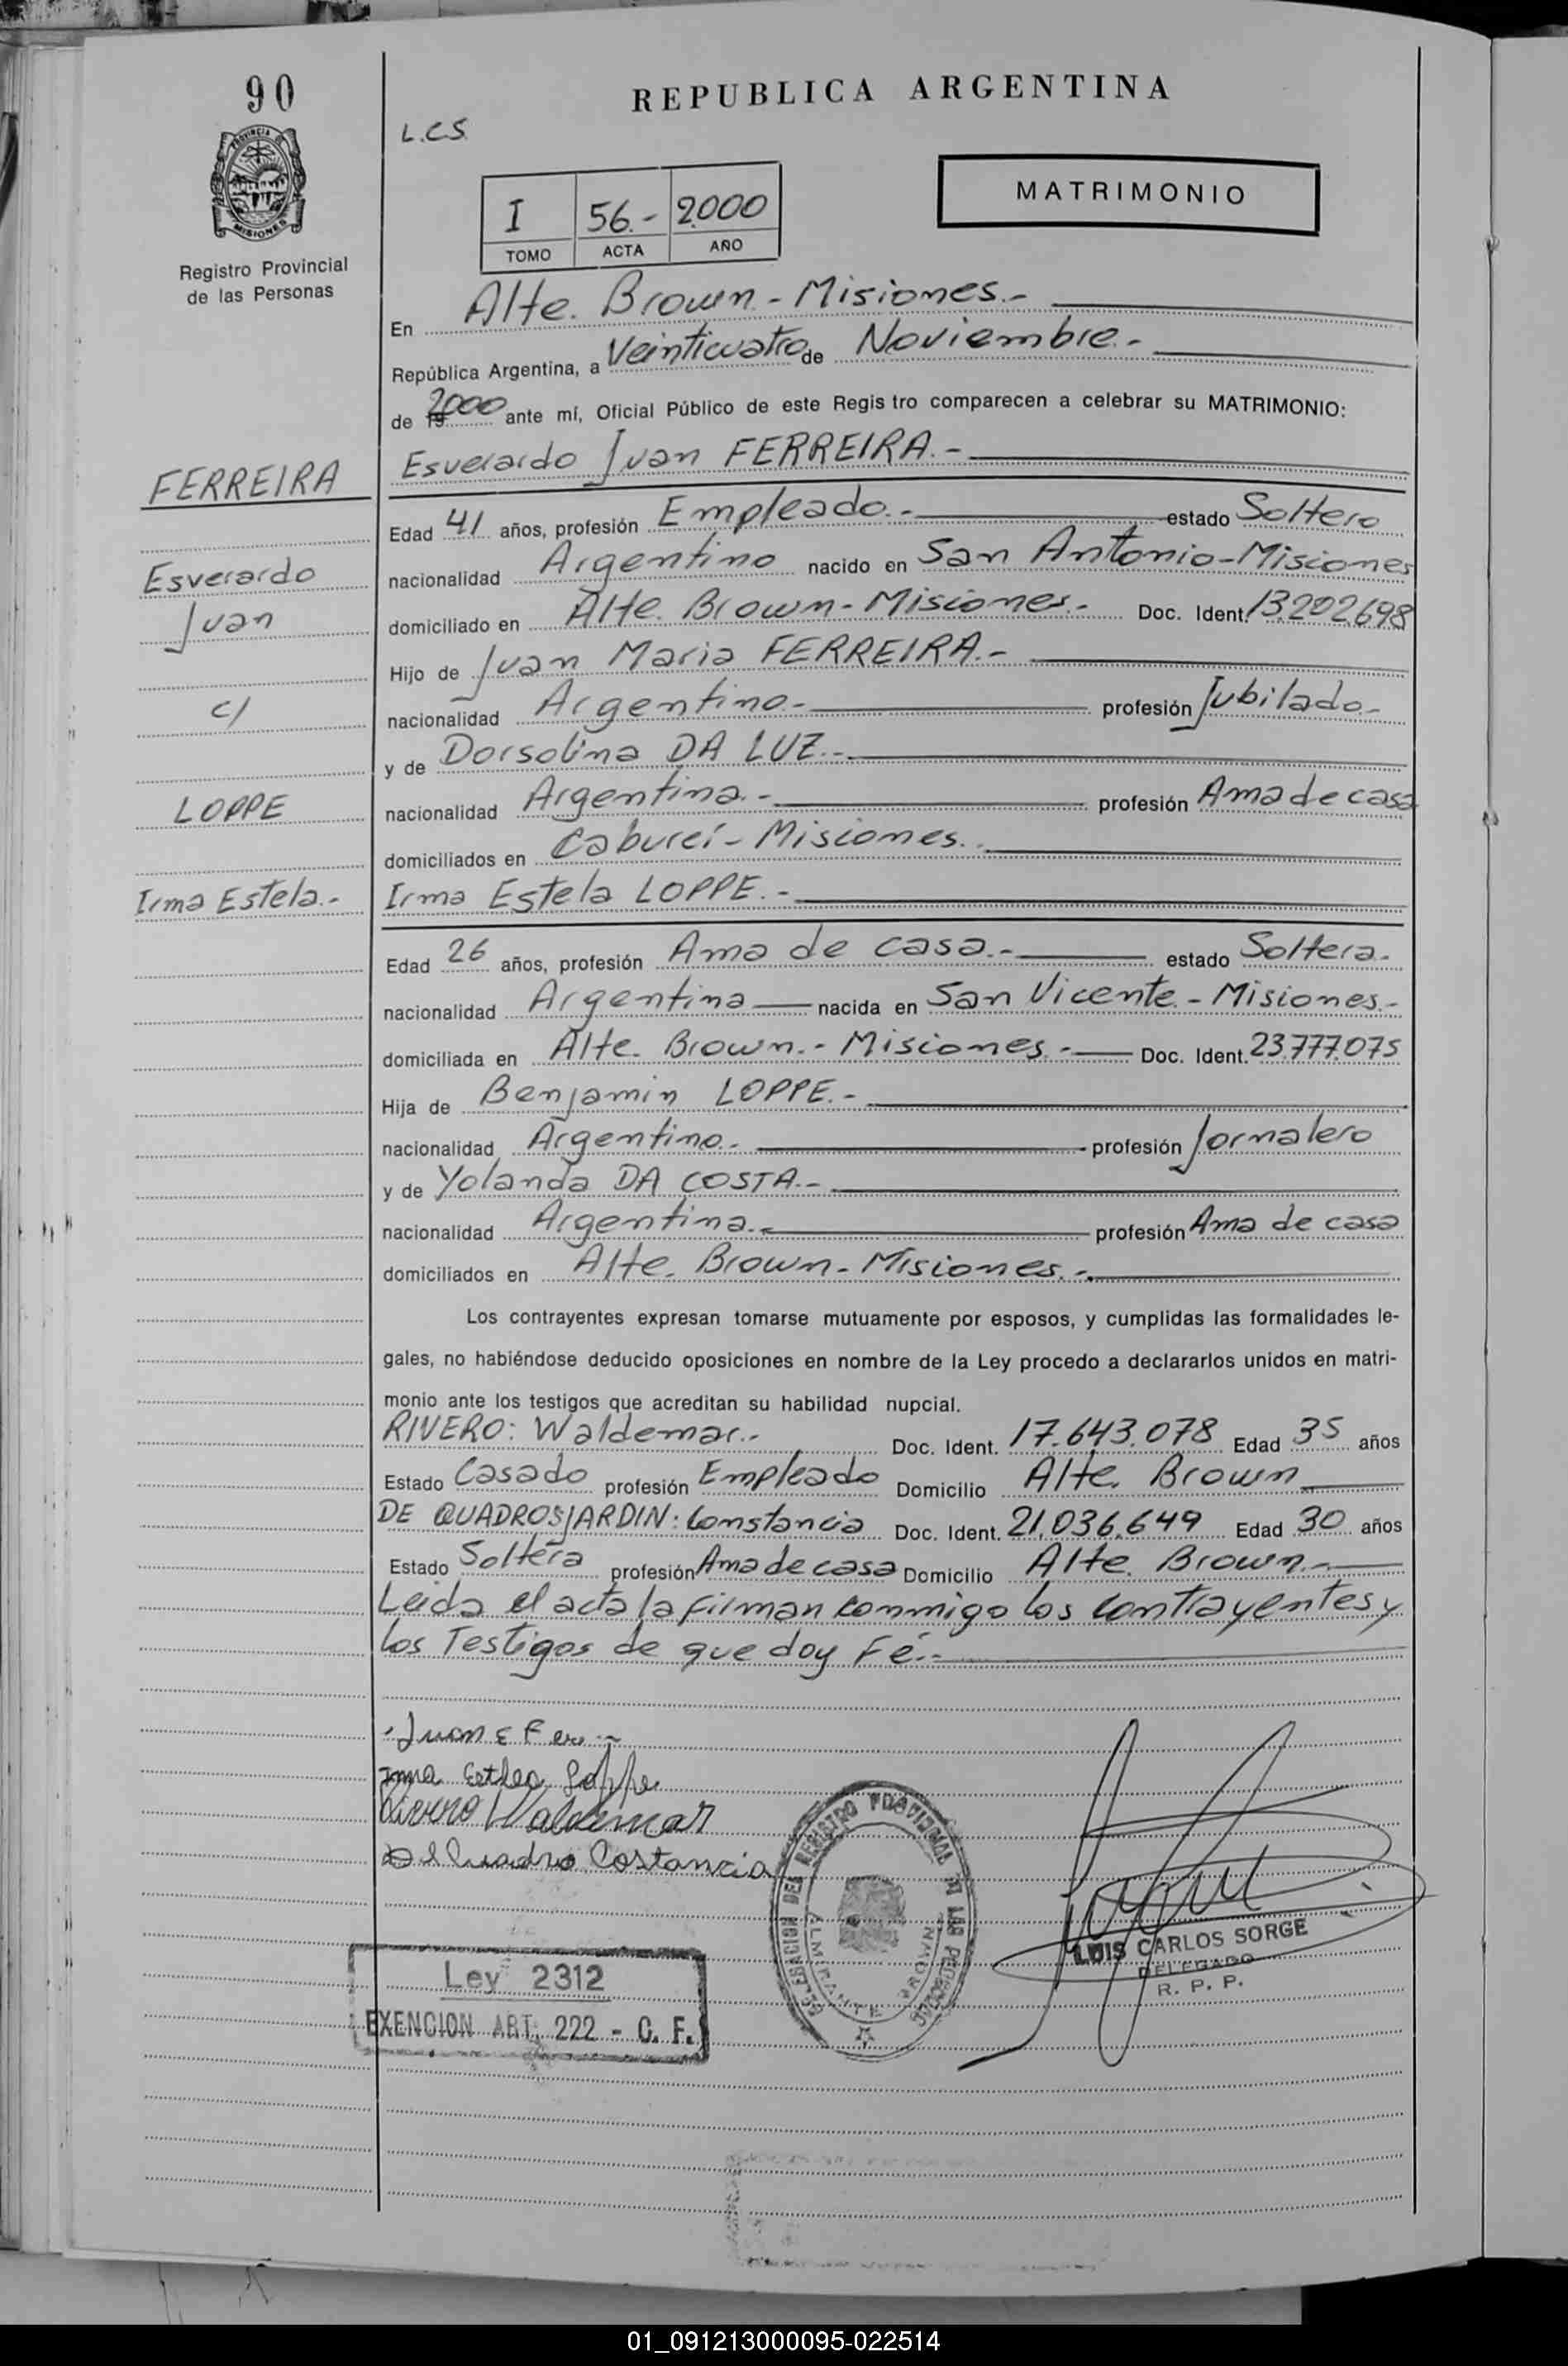 90
REPUBLICA ARGENTINA
L.C.S.
PROVINCIA DE
MISIONES
Registro Provincial
de las Personas
I 56.- 2000
TOMO ACTA AÑO
MATRIMONIO
En Alte. Brown - Misiones.-
República Argentina, a Veinticuatro de Noviembre.-
de 2000 ante mí, Oficial Público de este Regis tro comparecen a celebrar su MATRIMONIO:
FERREIRA
Esverardo Juan FERREIRA.-
Edad 41 años, profesión Empleado.- estado Soltero
Esverardo
nacionalidad Argentino nacido en San Antonio-Misiones
Juan
domiciliado en Alte. Brown - Misiones.- Doc. Ident. 13.202.698
Hijo de Juan Maria FERREIRA.-
c/
nacionalidad Argentino.- profesión Jubilado.-
y de Dorsolina DA LUZ.-
LOPPE
nacionalidad Argentina.- profesión Ama de casa
domiciliados en Cabureí - Misiones.
Irma Estela.-
Irma Estela LOPPE.-
Edad 26 años, profesión Ama de casa.- estado Soltera.-
nacionalidad Argentina nacida en San Vicente.- Misiones.-
domiciliada en Alte. Brown.- Misiones.- Doc. Ident. 23.777.075
Hija de Benjamin LOPPE.-
nacionalidad Argentino.- profesión Jornalero
y de Yolanda DA COSTA.-
nacionalidad Argentina.- profesión Ama de casa
domiciliados en Alte. Brown - Misiones.-
Los contrayentes expresan tomarse mutuamente por esposos, y cumplidas las formalidades le-
gales, no habiéndose deducido oposiciones en nombre de la Ley procedo a declararlos unidos en matri-
monio ante los testigos que acreditan su habilidad nupcial.
RIVERO: Waldemar.- Doc. Ident. 17.643.078 Edad 35 años
Estado Casado profesión Empleado Domicilio Alte. Brown
DE QUADROS JARDIN: Constancia Doc. Ident. 21.036.649 Edad 30 años
Estado Soltera profesión Ama de casa Domicilio Alte. Brown.-
Leida el acta la firman conmigo los contrayentes y
los Testigos de que doy Fé.-
Juan E
Irma Loppe
Rivero Waldemar
Cuadro Costancia
DELEGACION DEL REGISTRO PROVINCIAL DE LAS PERSONAS
ALMIRANTE BROWN
LUIS CARLOS SORGE
DELEGADO
R. P. P.
Ley 2312
EXENCION ART. 222 - C. F.
01_091213000095-022514